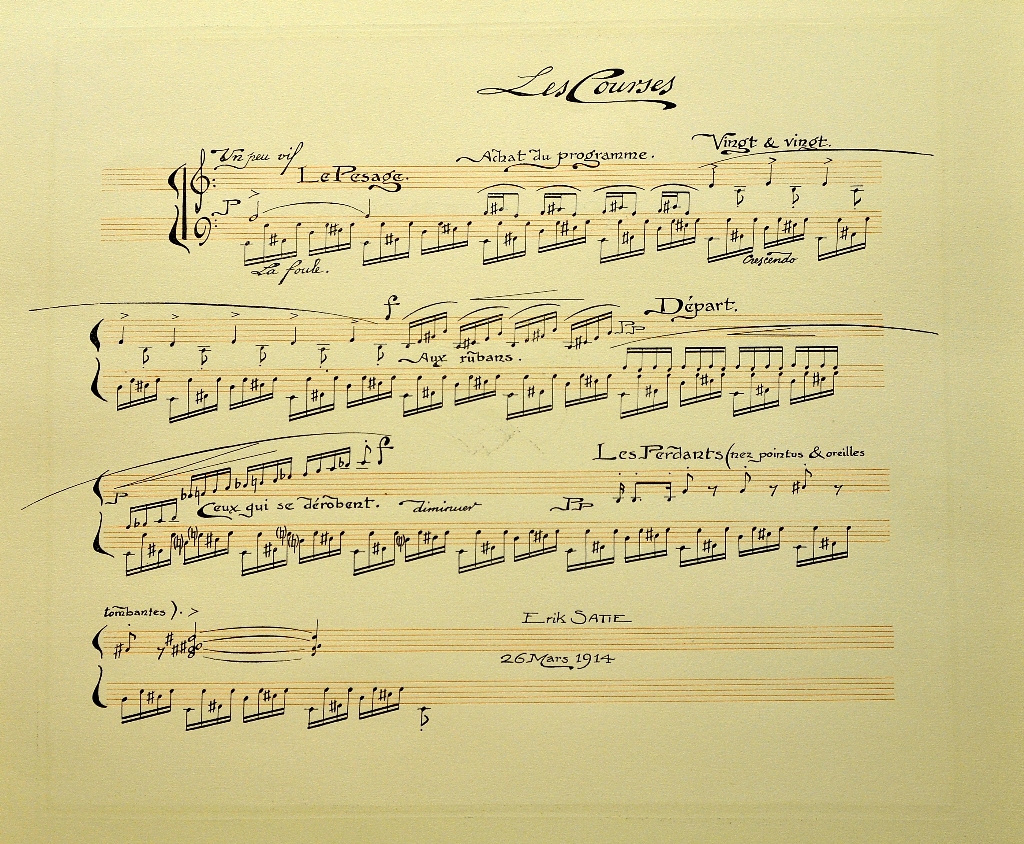 Les Courses
Un peu vif
Le Pesage.
Achat du programme.
Vingt & vingt.
P
La foule.
Crescendo
f
Départ.
Aux rubans.
Pp
P
f
Ceux qui se dérobent.
diminuer
Pp
Les Perdants (nez pointus & oreilles
tombantes).
Erik SATIE
26 Mars 1914